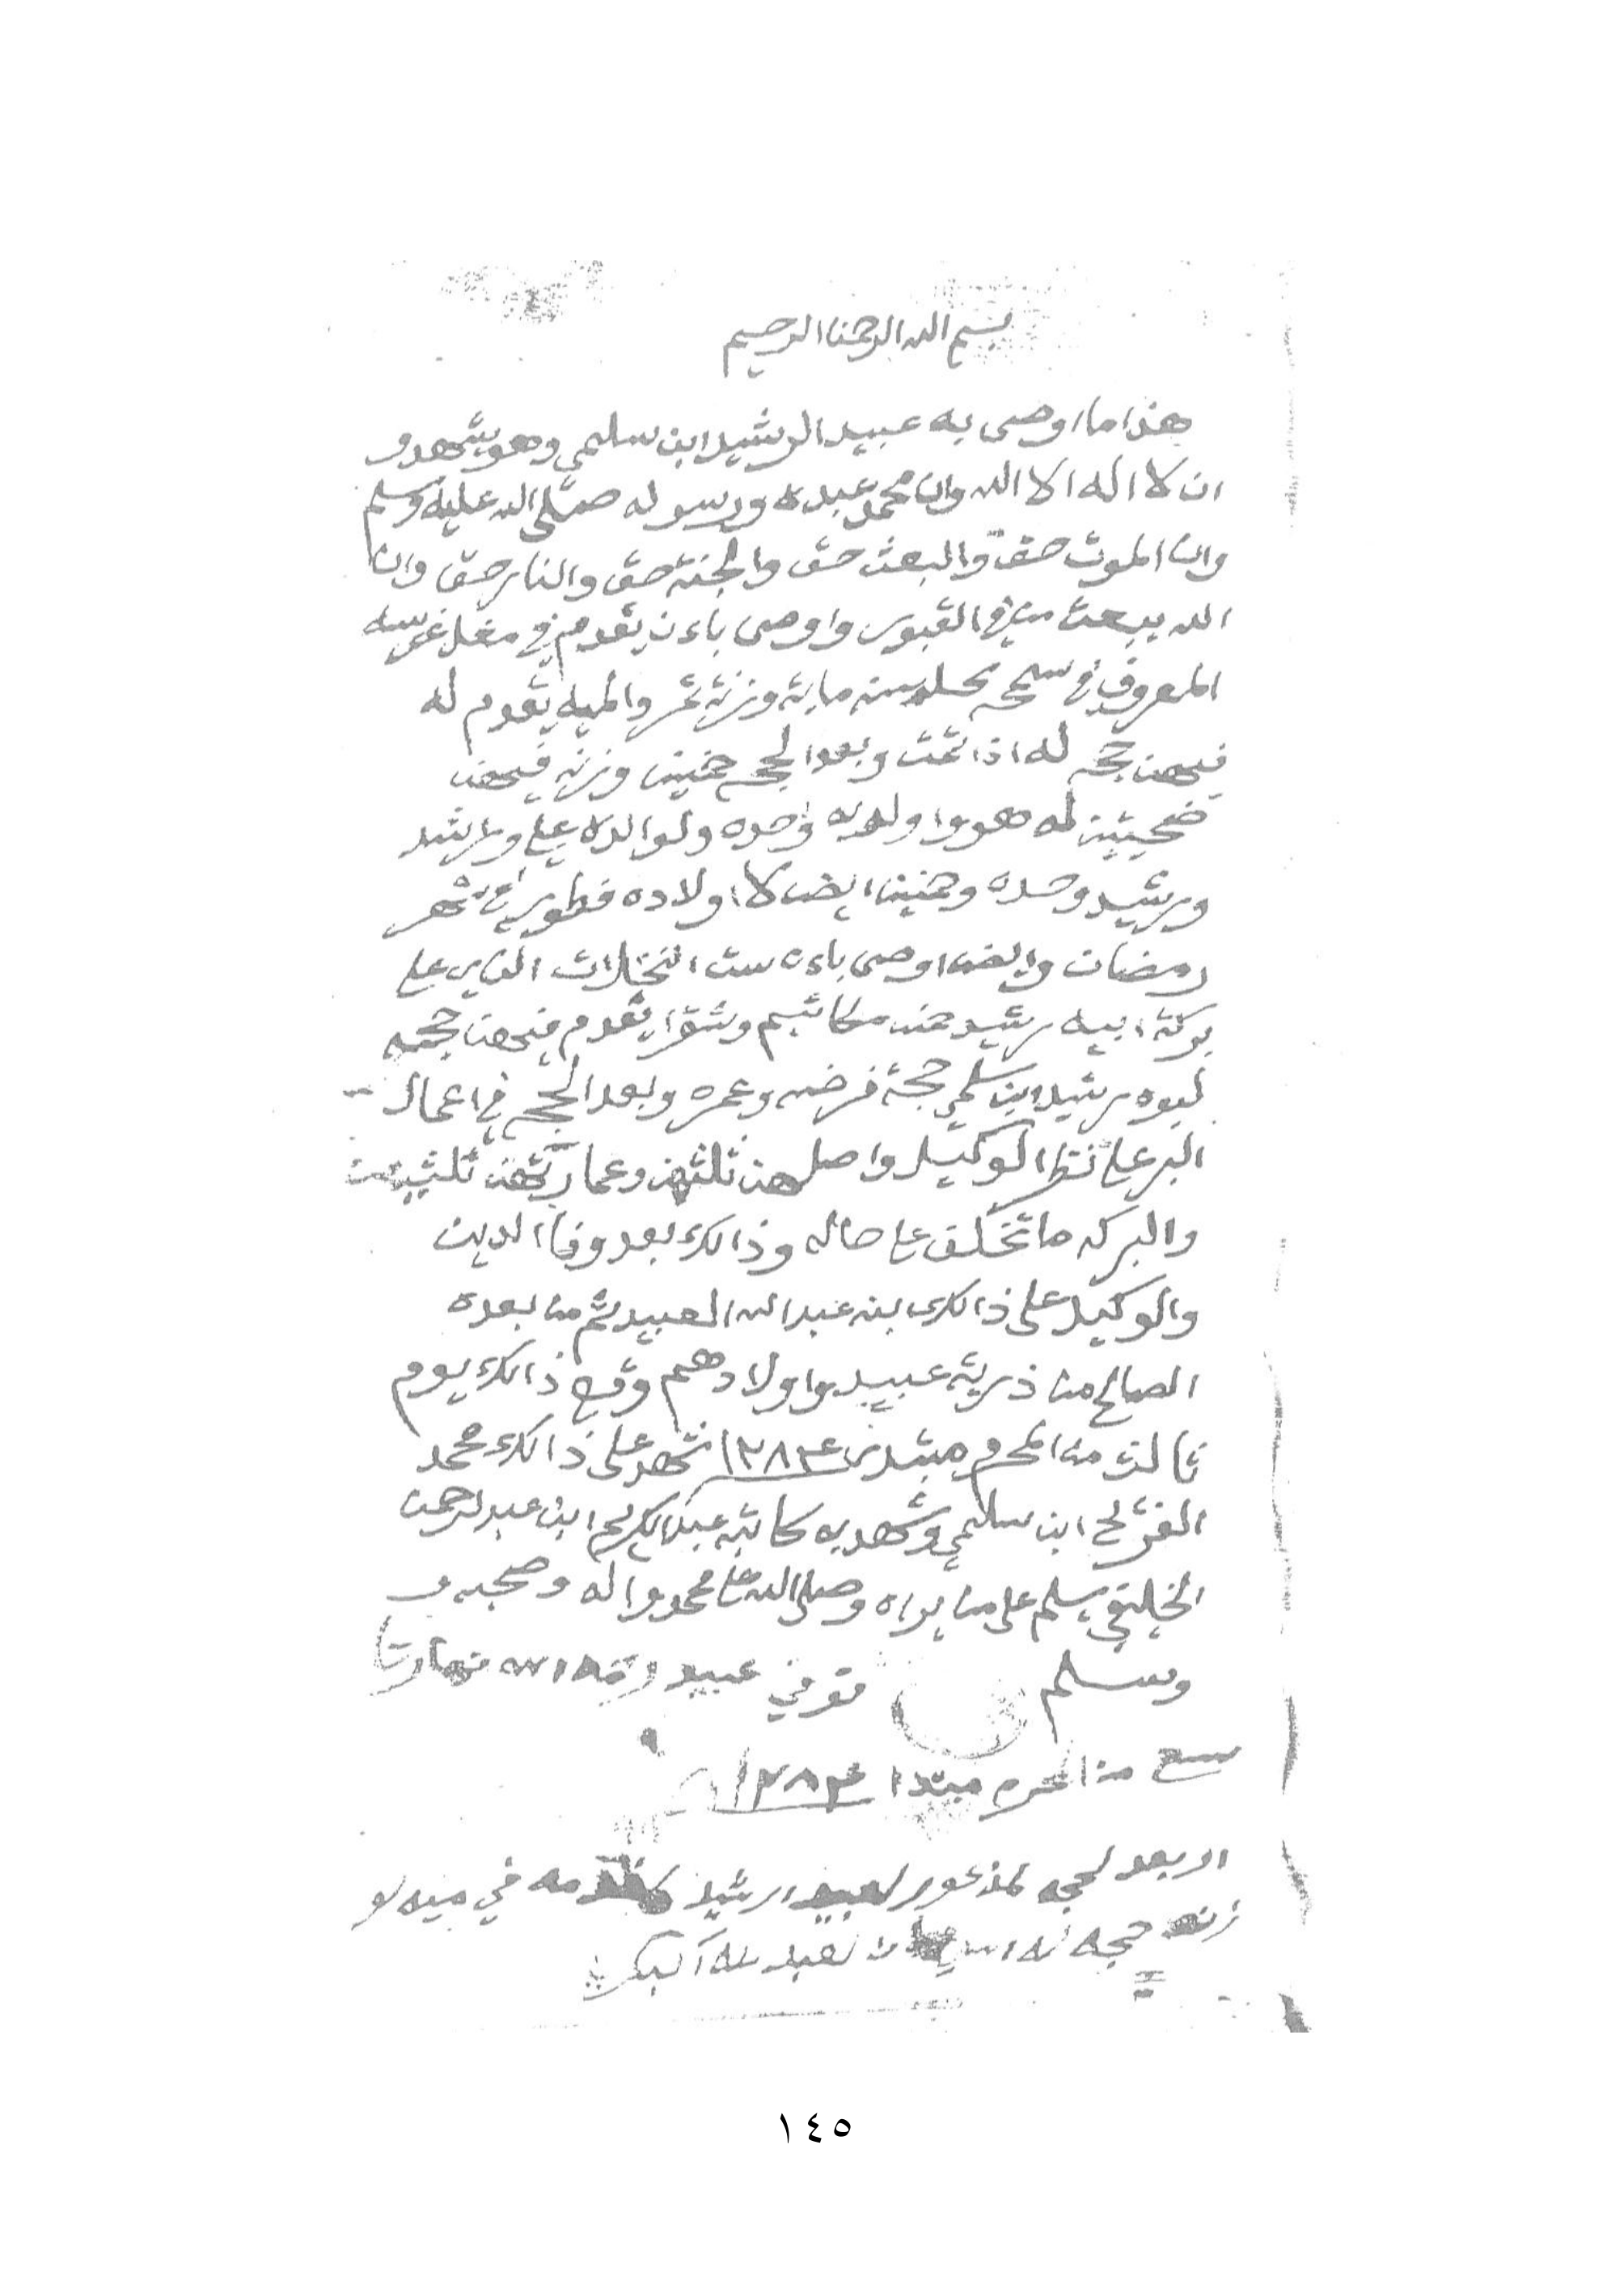 بسم الله الرحمن الرحيم
هذا ما اوصى به عبيد الرشيد ابن سليمي وهو يشهد
ان لا اله الا الله وان محمد عبده ورسوله صلى الله عليه وسلم
وان الموت حق والبعث حق والجنة حق والنار حق وان
الله يبعث من في القبور واوصى باءن يقدم في مغل غرسه
المعروف في سمحه كل سنه ماية وزنة تمر والميه يقدم له
فيهن حجه له اذا تمت وبعد الحجه خمسين وزنه فيهن
ضحيتين له هو واولاده وحده ولوالده علي وراشد
ورشيد وحده وخمسين ايضا لاولاده فطور في شهر
رمضان وايضا اوصى باءه ست النخلات الذي على
بركة ابيه رشيد مكاتيم وشقرا يقدم فيهن حجه
لبوه رشيد ابن سليمي حجة فرضه وعمره وبعد الحجه في اعمال
البر على نظر الوكيل واصلهن ثلثهن وعمارتهن ثلثيهن
والبركه ما تخلف على حاله وذالك بعد وفا الدين
والوكيل على ذالك ابنه عبد الله العبيد ثم من بعده
الصالح من ذرية عبيد واولادهم وقع ذالك يوم
ثالث من المحرم مبتدى ١٢٨٣ شهد على ذالك محمد
ابن سليمي وشهد به كاتبه عبد الكريم ابن عبد الرحمن
الخليفي يسلم على من يراه وصلى الله على محمد واله وصحبه
وسلم توفي عبيد نهار
٩
من المحرم مبتدا ١٢٨٣
بعد لحجه رشيد في
حجه له
١٤٥